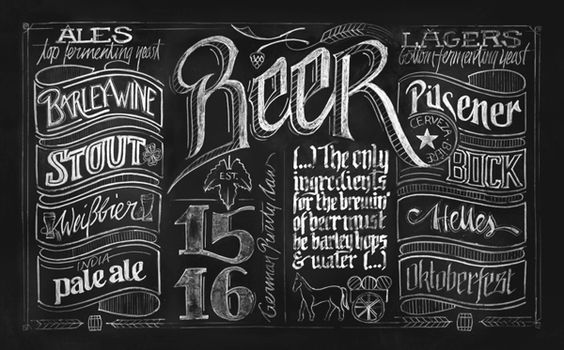 ÄLES
top fermenting yeast
BARLEYWINE
STOUT
Weißbier
INDIA
pale ale
BEER
EST.
15
16
German Purity Law
(...) The only
ingredients
for the brewin'
of beer must
be barley hops
& water (...)
LAGERS
bottom-fermenting yeast
Pilsener
CERVEZA BIÈRE
BOCK
Helles
Oktoberfest